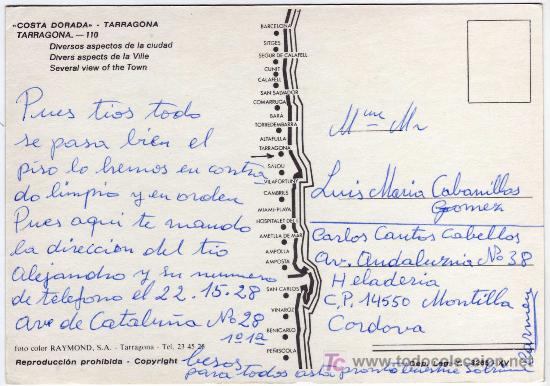 «COSTA DORADA» - TARRAGONA
TARRAGONA. — 110
Diversos aspectos de la ciudad
Divers aspects de la Ville
Several view of the Town
Pues tios todo
se pasa bien el
piso lo hemos en contra
do limpio y en orden
Pues aqui te mando
la direccion del tio
Alejandro y su numero
de telefono el 22.15.28
Ave de Cataluña No 28
1º 1ª
foto color RAYMOND, S.A. - Tarragona - Tel. 23 45 26
Reproducción prohibida - Copyright
besos
para todos asta pronto
BARCELONA
SITGES
SEGUR DE CALAFELL
CUNIT
CALAFELL
SAN SALVADOR
COMARRUGA
BARA
TORREDEMBARRA
ALTAFULLA
TARRAGONA
SALOU
VILAFORTUNY
CAMBRILS
MIAMI-PLAYA
HOSPITALET DEL I.
AMETLLA DE MAR
AMPOLLA
AMPOSTA
SAN CARLOS
VINAROZ
BENICARLO
PEÑISCOLA
Luis Maria Cabanillas
Gomez
Carlos Cantos Cabellos
Av. Andaluznia Nº 38
Heladeria
C.P. 14550 Montilla
Cordova
todocoleccion.net